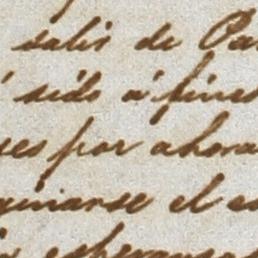 salir de Pa
sido á fines
es por ahora
ginarse el es
esperanza